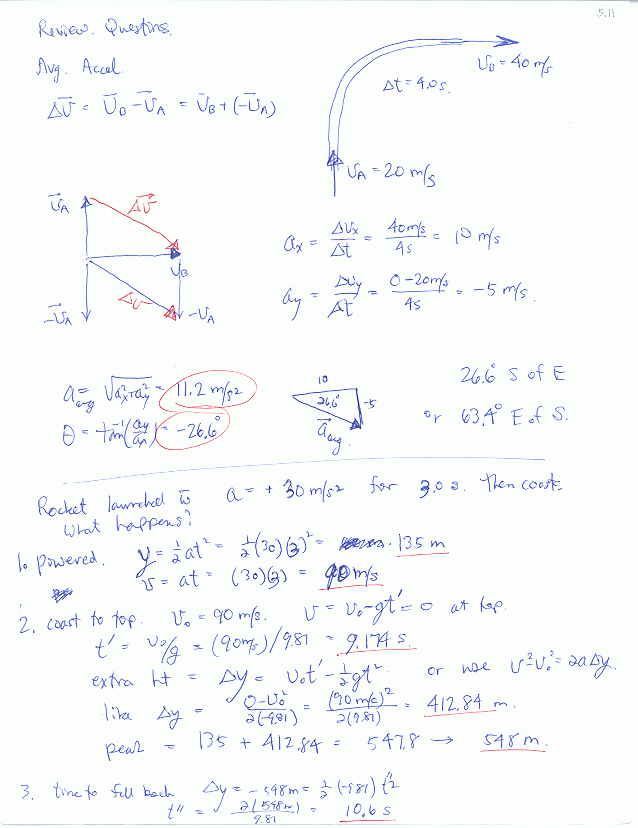 5.11
Review Questions.
Avg. Accel
Δv⃗ = v⃗B - v⃗A = v⃗B + (-v⃗A)
vB = 40 m/s
Δt = 4.0 s.
vA = 20 m/s
v⃗A Δv⃗
vB
-v⃗A Δv⃗ -vA
ax = Δvx/Δt = 40 m/s / 4s = 10 m/s
ay = Δvy/Δt = 0-20 m/s / 4s = -5 m/s.
a avg = √ax²+ay² = 11.2 m/s²
θ = tan⁻¹(ay/ax) = -26.6°
10
26.6° -5
a⃗avg.
26.6° S of E
or 63.4° E of S.
Rocket launched w̄ a = +30 m/s² for 3.0 s. then coasts.
What happens?
1. powered. y = ½at² = ½(30)(3)² = 135 m
v = at = (30)(3) = 90 m/s
2. coast to top. v₀ = 90 m/s. v = v₀-gt' = 0 at top.
t' = v₀/g = (90 m/s)/9.81 = 9.174 s.
extra ht = Δy = v₀t' - ½gt² or use v²-v₀² = 2aΔy.
like Δy = 0-v₀² / 2(-9.81) = (90 m/s)² / 2(9.81) = 412.84 m.
peak = 135 + 412.84 = 547.8 → 548 m.
3. time to fall back Δy = -548m = ½(-9.81) t''²
t'' = 2(548m) / 9.81 = 10.6 s